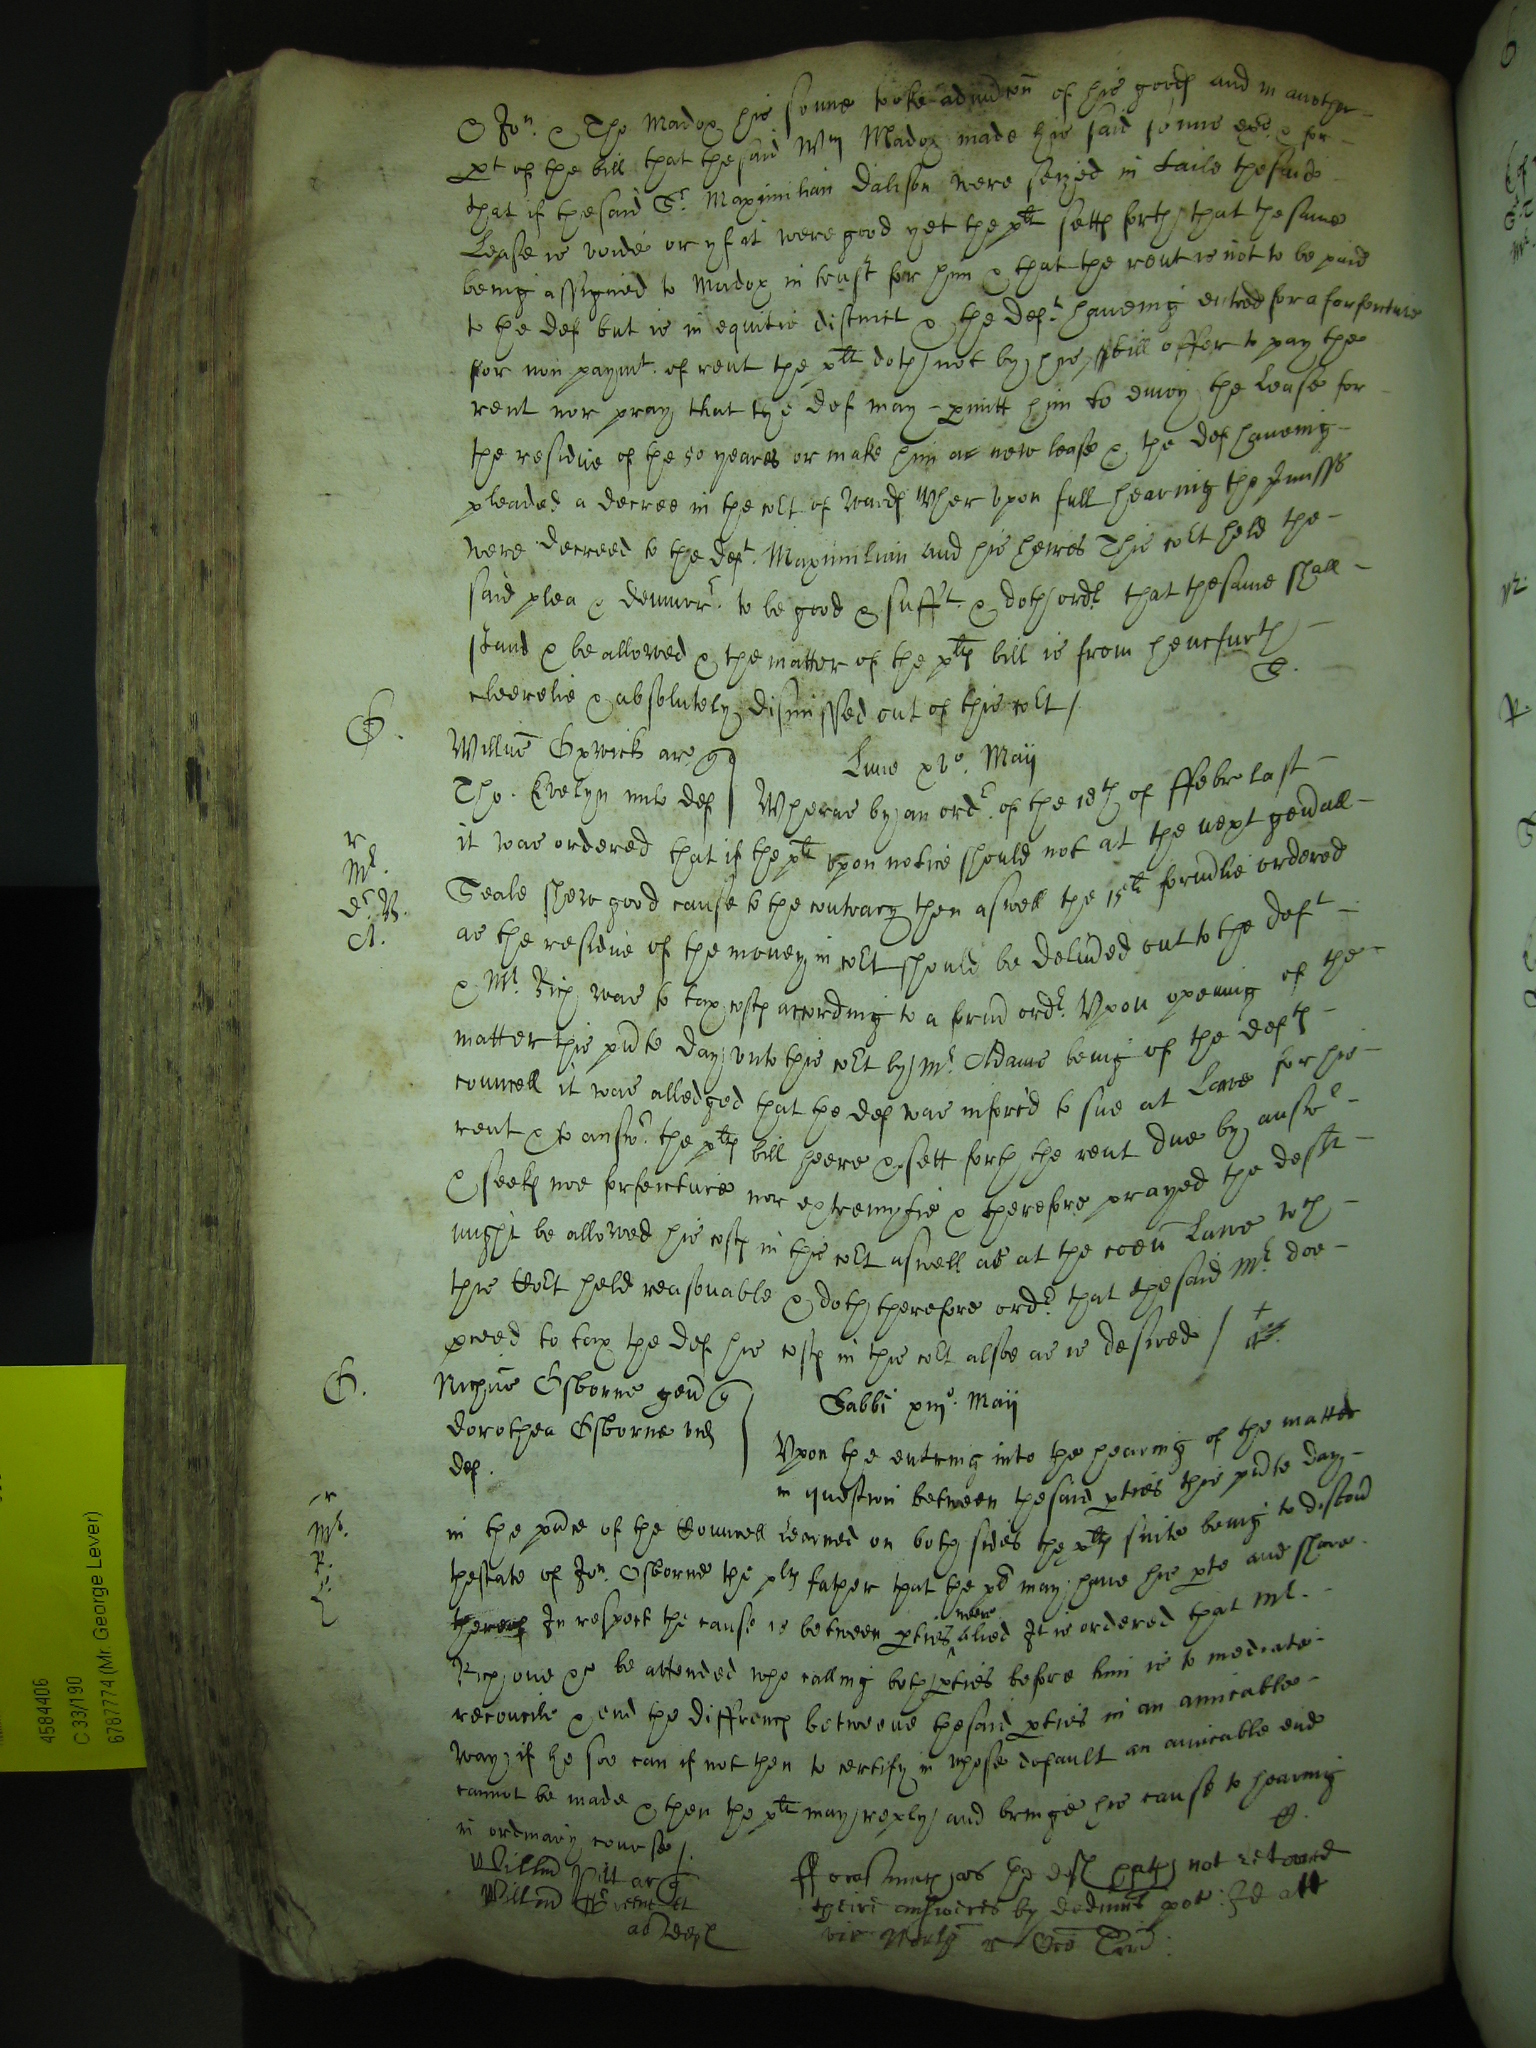 & Jon. & Tho Madox his sonne tooke admcon of his goods and in another
pt of the bill that the said Wm Madox made his said sonne exr & for
that if the said Sr. Maximilian Dalison were seized in taile the said
Lease is voide or yf it were good yet the plt setts forth that the same
being assigned to Madox in trust for him & that the rent is not to be paid
to the def but is in equitie distinct & the deft haveing entred for a forfeiture
for non paymt. of rent the plt doth not by his bill offer to pay the
rent nor pray that the def may pmitt him to enioy the Lease for
the residue of the 50 yeares or make him a new lease & the def haveing
pleaded a decree in the coLt of Wards Wher upon full hearing the pmisss
were decreed to the deft. Maximilian and his heires This coLt held the
said plea & demurr. to be good & sufft. & doth ordr that the same shall
stand & be allowed & the matter of the plts bill is from hencfurth
cleerelie & absolutely dismissed out of this coLt /
Willus Oxwick ar q
Lune xvo. Maij
Tho. Evelyn mil def
Wheras by an ordr. of the 18th of ffebr last
it was ordered that if the plt upon notice should not at the next genall
Seale shew good cause to the contrary then aswell the 15li formlie ordered
as the residue of the money in coLt should be delivd out to the deft
& Mr. Rich was to tax costs according to a form ordr. Upon opening of the
matter this pnte day unto this coLt by Mr Adams being of the defts
councell it was alledged that the def was inforcd to sue at Lawe for his
rent & to answr. the plts bill heere & sett forth the rent due by answr
& seeks noe forfeiture nor extremytie & therefore prayed the deft
might be allowed his costs in this coLt aswell as at the coen Lawe wch
this CoLt held reasonable & doth therefore ordr that the said Mr doe
pceed to tax the def his costs in this coLt alsoe as is desired /
Nichus Osborne gen q
Sabbi xiijo. Maij
Dorothea Osborne vid
def.
Upon the entring into the hearing of the matter
in question between the said pties this pnte day
in the pnce of the Councell Learned on both sides the plts suite being to discov
thestate of Jon. Osborne the plts father that the plt may have his pte and share
thereof In respect the cause is between pties neere alied It is ordered that Mr.
Rich one &c be attended who calling both pties before him is to mediate
reconcile & end the diffrencs betweene the said pties in an amicable
way if he soe can if not then to certify in whose default an amicable end
cannot be made & then the plt may reply and bringe his cause to hearing
in ordinary course /.
Willm Pitt ar q
Willm et
al defts
fforasmuch as the defts hath not retorned
theire answeres by dedimus pot: Id att
vic